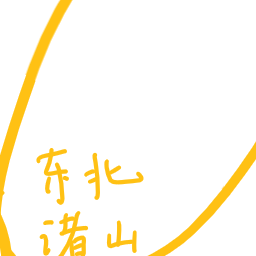 东北
诸山